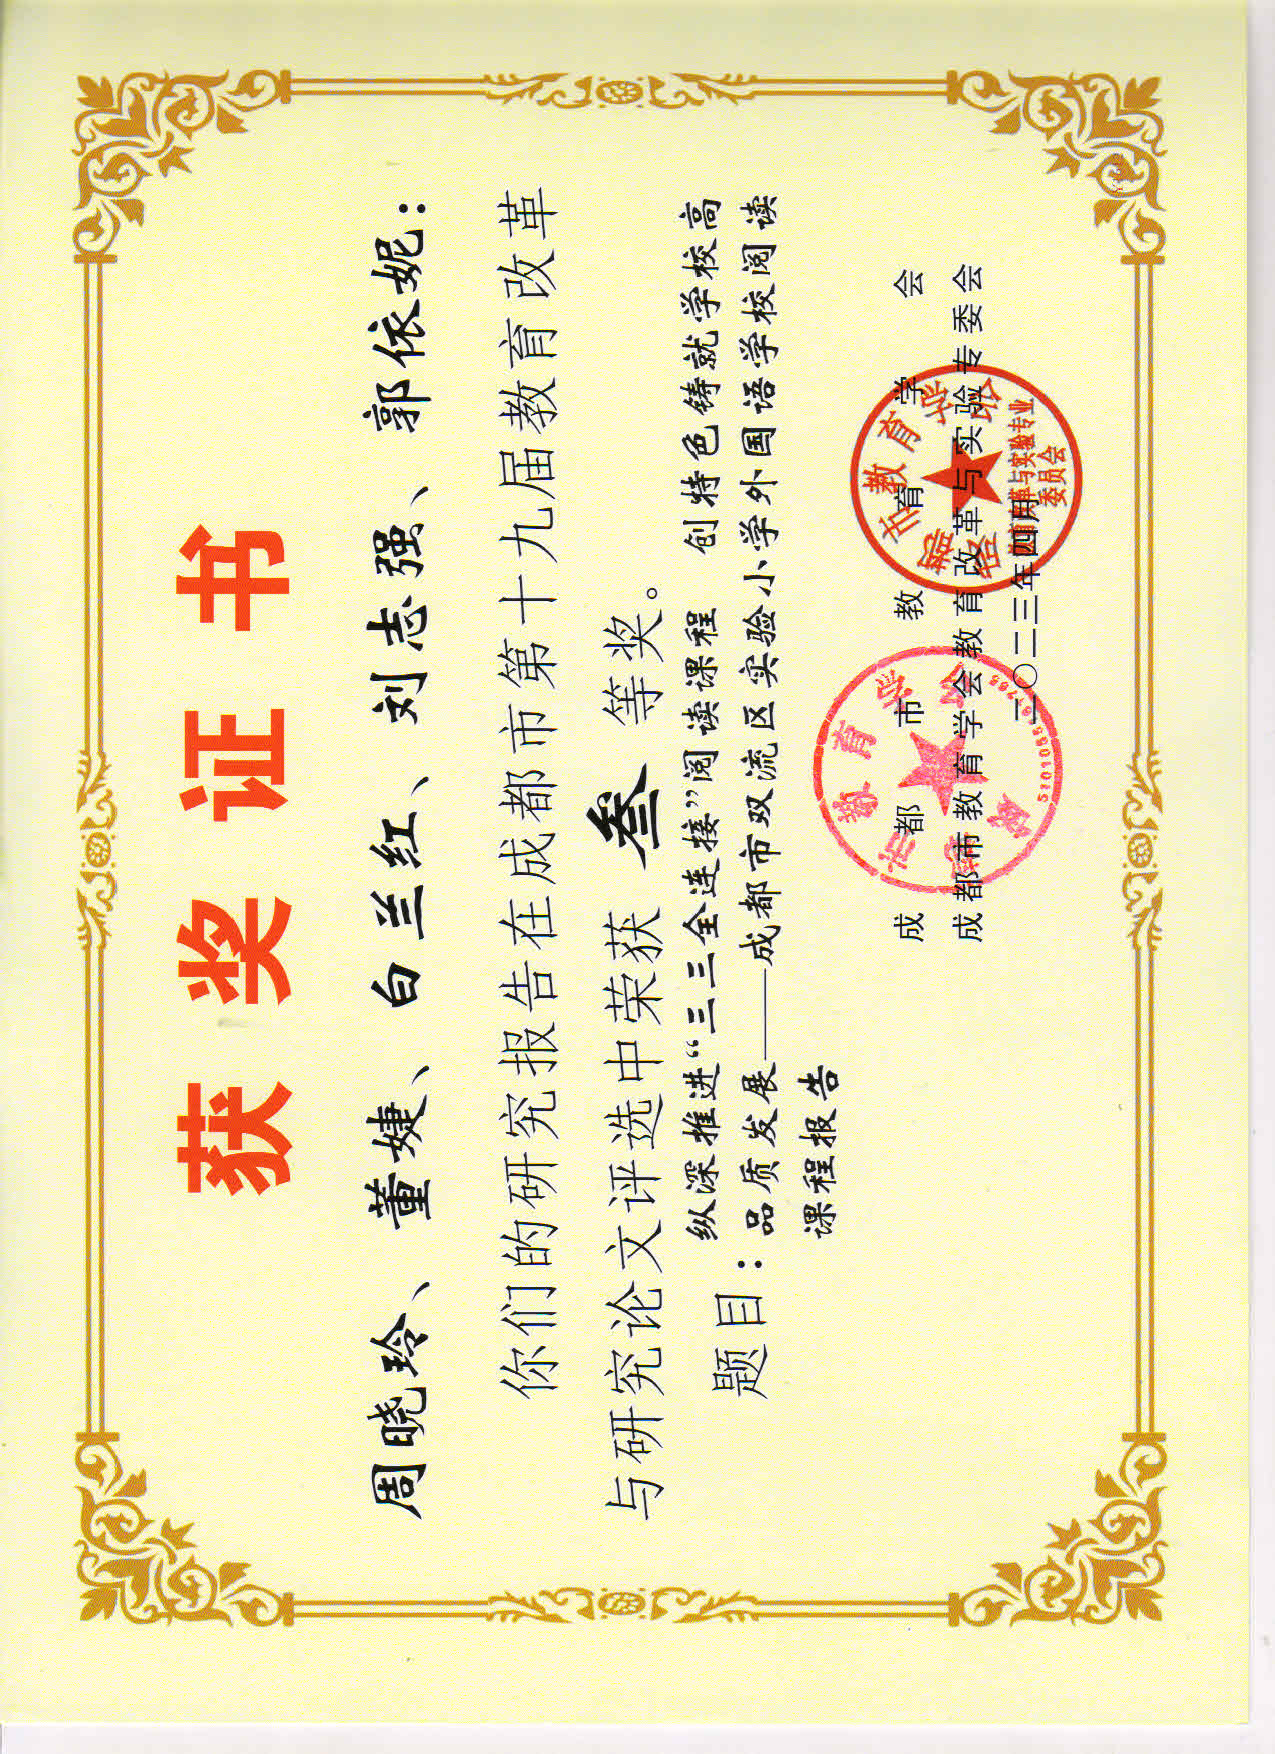 获奖证书
周晓玲、董婕、白兰红、刘志强、郭依妮：
你们的研究报告在成都市第十九届教育改革
与研究论文评选中荣获 叁 等奖。
题目：
纵深推进“三三全连接”阅读课程 创特色铸就学校高
品质发展——成都市双流区实验小学外国语学校阅读
课程报告
成都市教育学会
成都市教育学会教育改革与实验专委会
二〇二三年四月
成都市教育学会
教育改革与实验专业
委员会